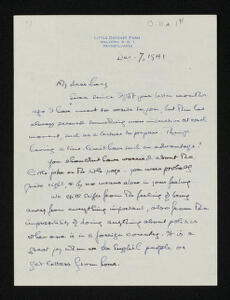 LITTLE BRITAIN FARM
MALVERN, R. D. 1
PENNSYLVANIA
Dec. 7, 1941
My dear
Ever since I got your letter months
ago I have meant to write to you but there has
always seemed something more immediate at each
moment such as a lecture to prepare. Things
having a time-limit have such an advantage!
You shouldn't have worried about the
little joke on the title page. You were probably
quite right, & by no means alone in your feeling
We still suffer from the feeling of being
away from everything important, also from the
impossibility of doing anything about politics
when one is in a foreign country. It is a
great joy when we see English people, or
get letters from home.